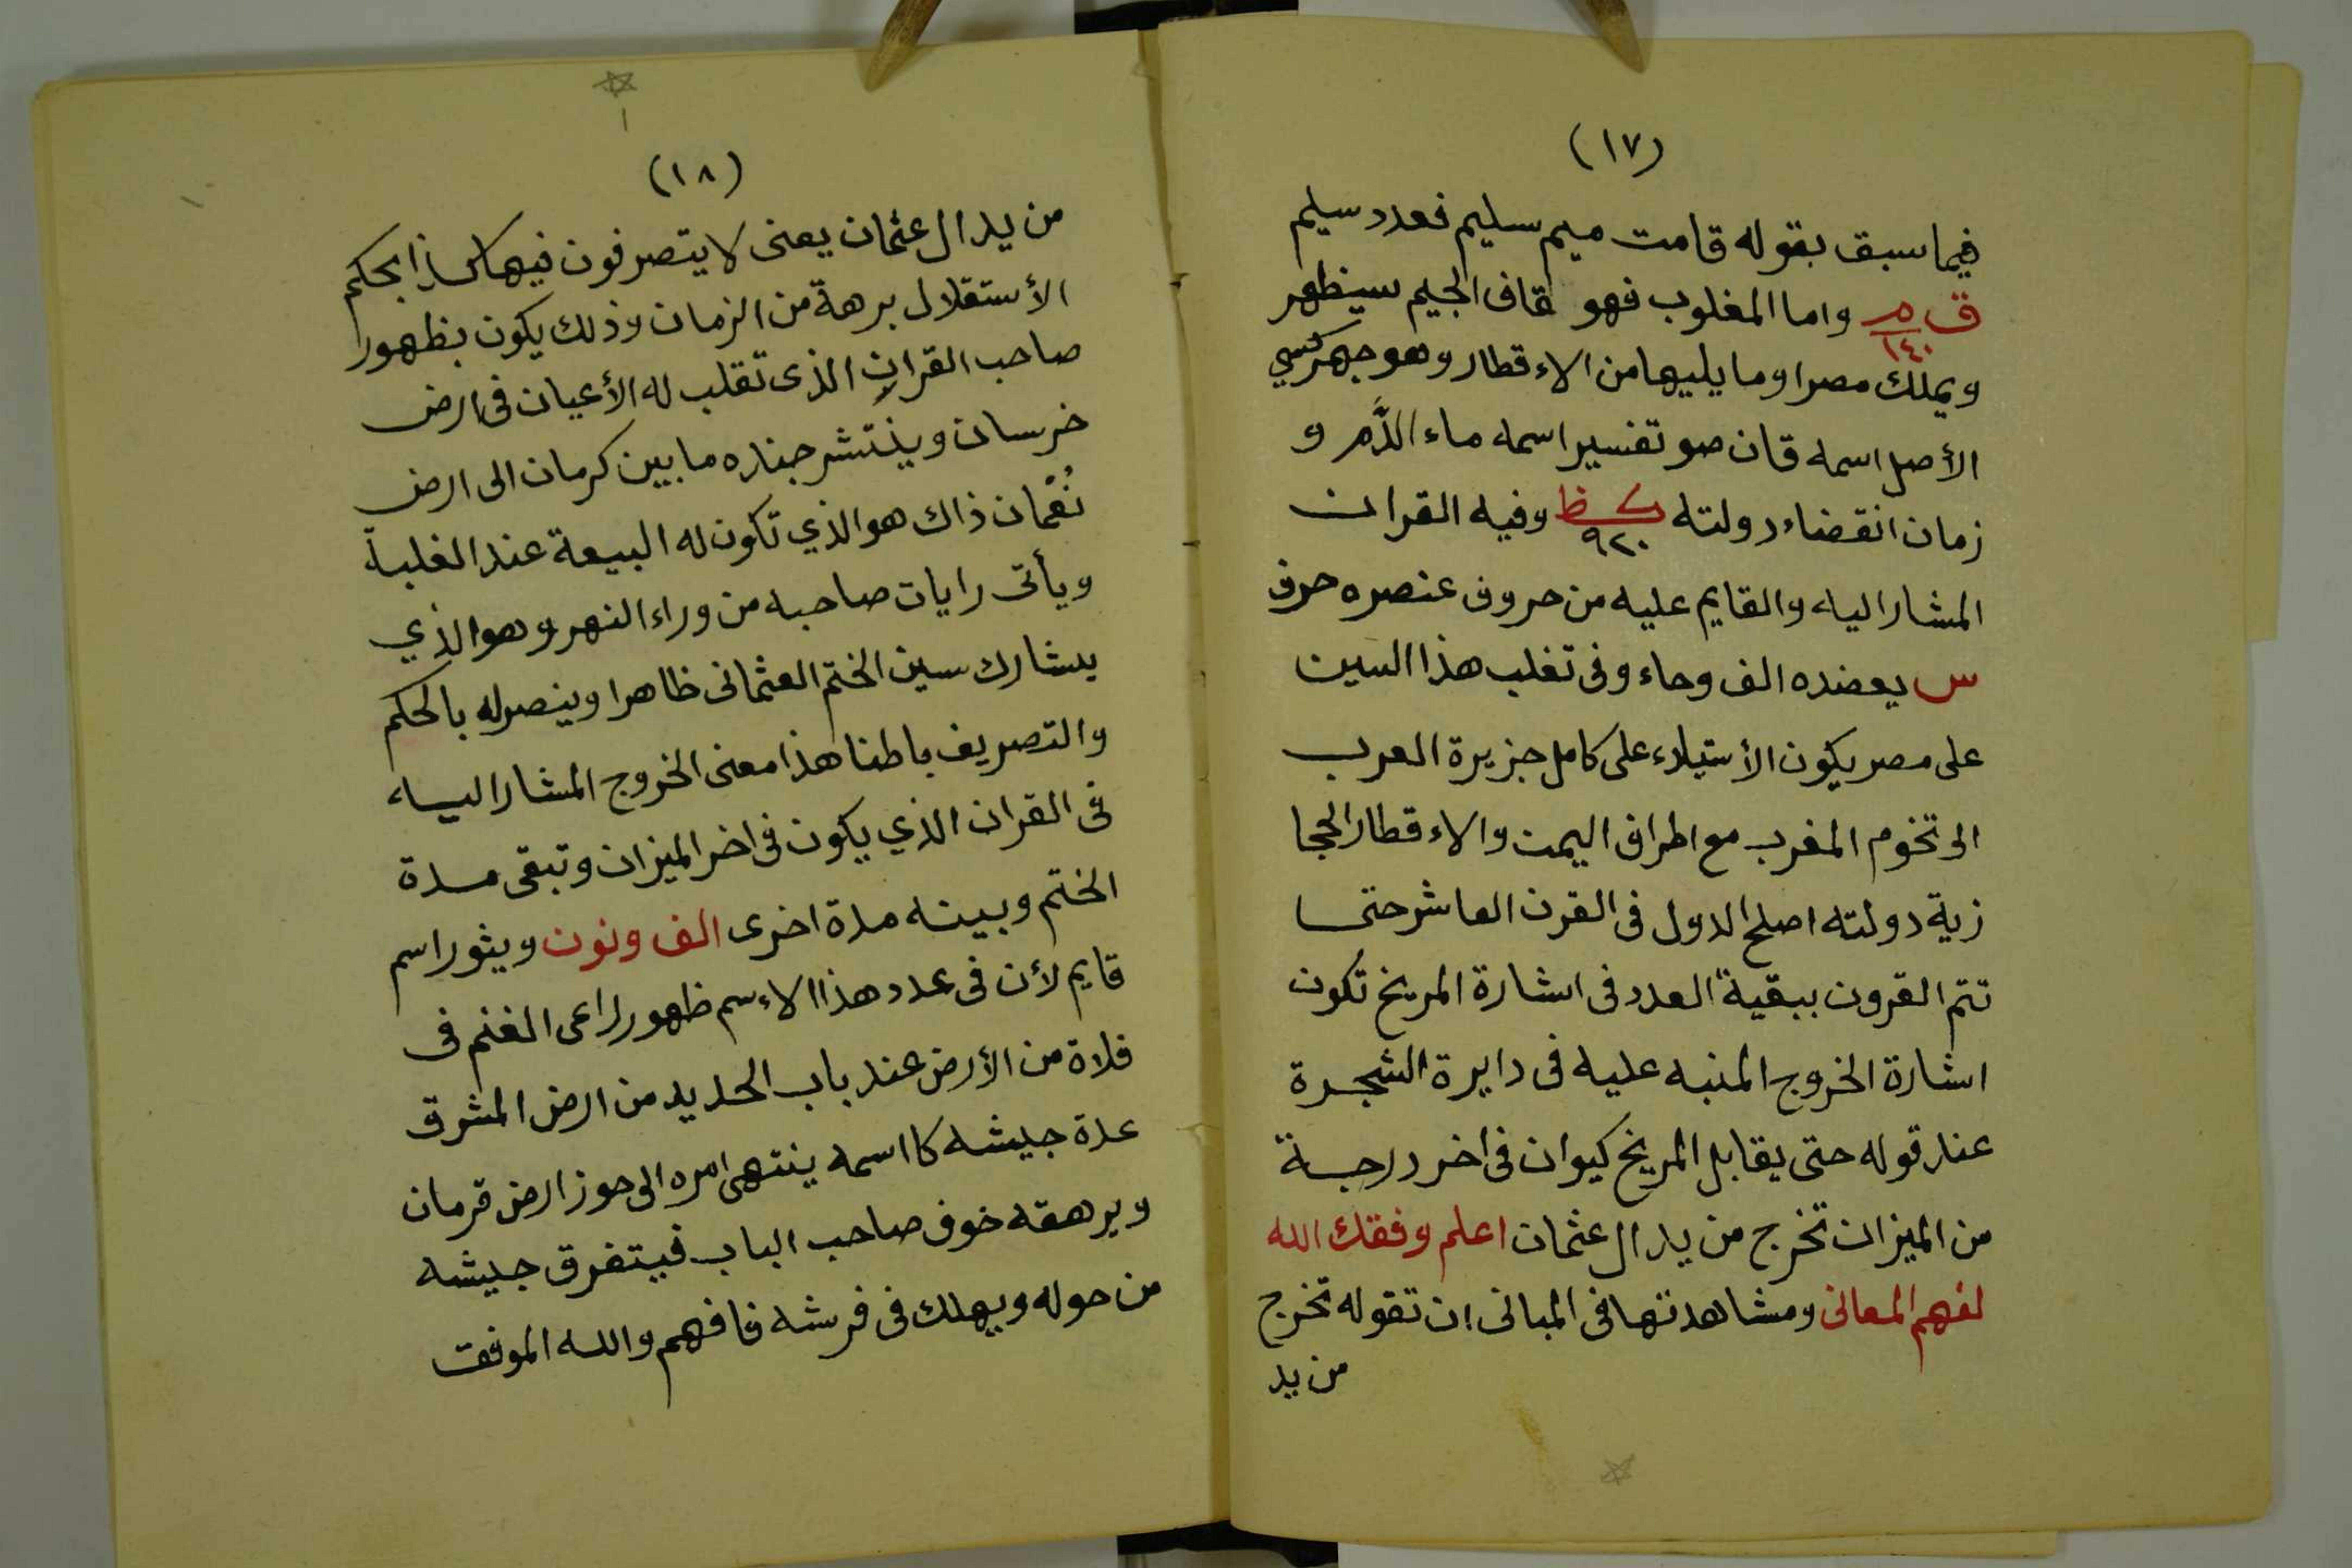 (١٧)
فيما سبق بقوله قامت ميم سليم فعدد سليم
ق م ١٤٠ واما المغلوب فهو قاف الجيم سيظهر
ويملك مصرا وما يليها من الاءقطار وهو جهركسي
الأصل اسمه قان صو تفسير اسمه ماء الدَّم و
زمان انقضاء دولته ك ظ ٩٢٠ وفيه القران
المشار اليه والقايم عليه من حروف عنصره حرف
س يعضده الف وحاء وفى تغلب هذا السين
على مصر يكون الأستيلاء على كامل جزيرة العرب
الى تخوم المغرب مع اطراف اليمن والاءقطار الحجا
زية دولته اصلح الدول فى القرن العاشر حتى
تتم القرون ببقية العدد فى اشارة المريخ تكون
اشارة الخروج المنبه عليه فى دايرة الشجرة
عند قوله حتى يقابل المريخ كيوان فى اخر درجة
من الميزان تخرج من يد ال عثمان اعلم وفقك الله
لفهم المعانى ومشاهدتها فى المبانى ان تقوله تخرج
من يد
(١٨)
من يد ال عثمان يعنى لا يتصرفون فيها بحكم
الأستقلال برهة من الزمان وذلك يكون بظهور
صاحب القران الذى تقلب له الأعيان فى ارض
خرسان وينتشر جنده ما بين كرمان الى ارض
نُعْمان ذاك هو الذي تكون له البيعة عند الغلبة
ويأتى رايات صاحبه من وراء النهر وهو الذي
يشارك سين الختم العثمانى ظاهرا وينصر له بالحكم
والتصريف باطنا هذا معنى الخروج المشار اليه
فى القران الذي يكون فى اخر الميزان وتبقى مدة
الختم وبينه مدة اخرى الف ونون ويثور اسم
قايم لأن فى عدد هذا الاءسم ظهور راعى الغنم فى
فلاة من الأرض عند باب الحديد من ارض المشرق
عدة جيشه كا اسمه ينتهى امره الى حوز ارض قرمان
ويرهقه خوف صاحب الباب فيتفرق جيشه
من حوله ويهلك فى فرشه فافهم والله الموفق